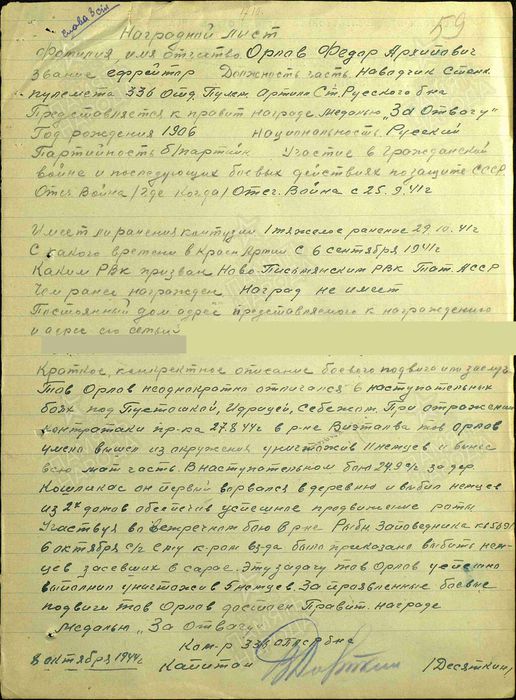 слава 3 ст
59
Наградной Лист
Фамилия, имя отчество Орлов Федор Архипович
Звание ефрейтор Должность часть. Наводчик Станк.
пулемета 336 Отд. Пулем. Артил Ст. Русского б-на
Представляется к правит награде Медалью "За Отвагу"
Год рождения 1906 Национальность. Русский
Партийность б/партийн Участие в Гражданской
войне и последующих боевых действиях по защите СССР
Отеч Война /Где Когда/ Отеч. Война с 25.9.41г
Имеет ли ранения контузии 1 тяжелое ранение 29.10.41г
С какого времени в Красн Армии С 6 сентября 1941г
Каким РВК призван Ново-Письмянским РВК Тат АССР
Чем ранее награжден Наград не имеет
Постоянный дом адрес представляемого к награждению
и адрес его семьи
Краткое, конкретное описание боевого подвига или заслуг
Тов Орлов неоднократно отличался в наступательных
боях под Пустошкой, Идрицей, Себежом. При отражении
контратаки пр-ка 27.8.44г в р-не тов Орлов
умело вышел из окружения уничтожив 11 немцев и вынес
всю мат часть. В наступательном бою 24.9 с/г за дер
он первый ворвался в деревню и выбил немцев
из 2х домов обеспечив успешное продвижение роты
Участвуя во встречном бою в р-не Рыбн Заповедника
6 октября с/г Ему к-ром вз-да было приказано выбить нем-
цев засевших в сарае. Эту задачу тов Орлов успешно
выполнил уничтожив 5 немцев. За проявленные боевые
подвиги тов Орлов достоин Правит. награде
Медалью "За Отвагу"
Ком-р 336
8 октября 1944г Капитан /Десяткин/